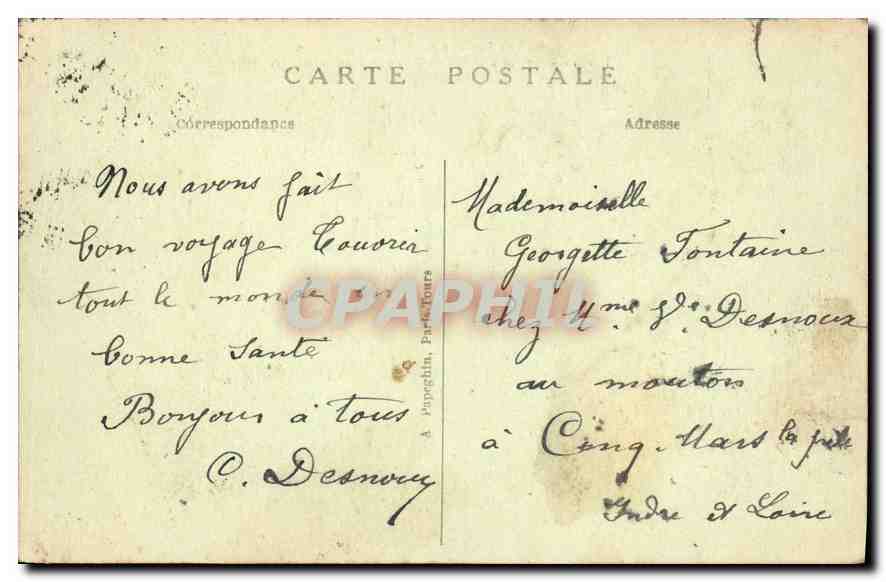 CARTE POSTALE
Correspondance
Adresse
Nous avons fait
bon voyage Trouver
tout le monde en
bonne Santé
Bonjour à tous
C. Desnoux
A Papeghin, Paris-Tours
CPAPHIL
Mademoiselle
Georgette Fontaine
chez Mme Ve Desnoux
au mouton
à Cinq-Mars la pile
Indre et Loire